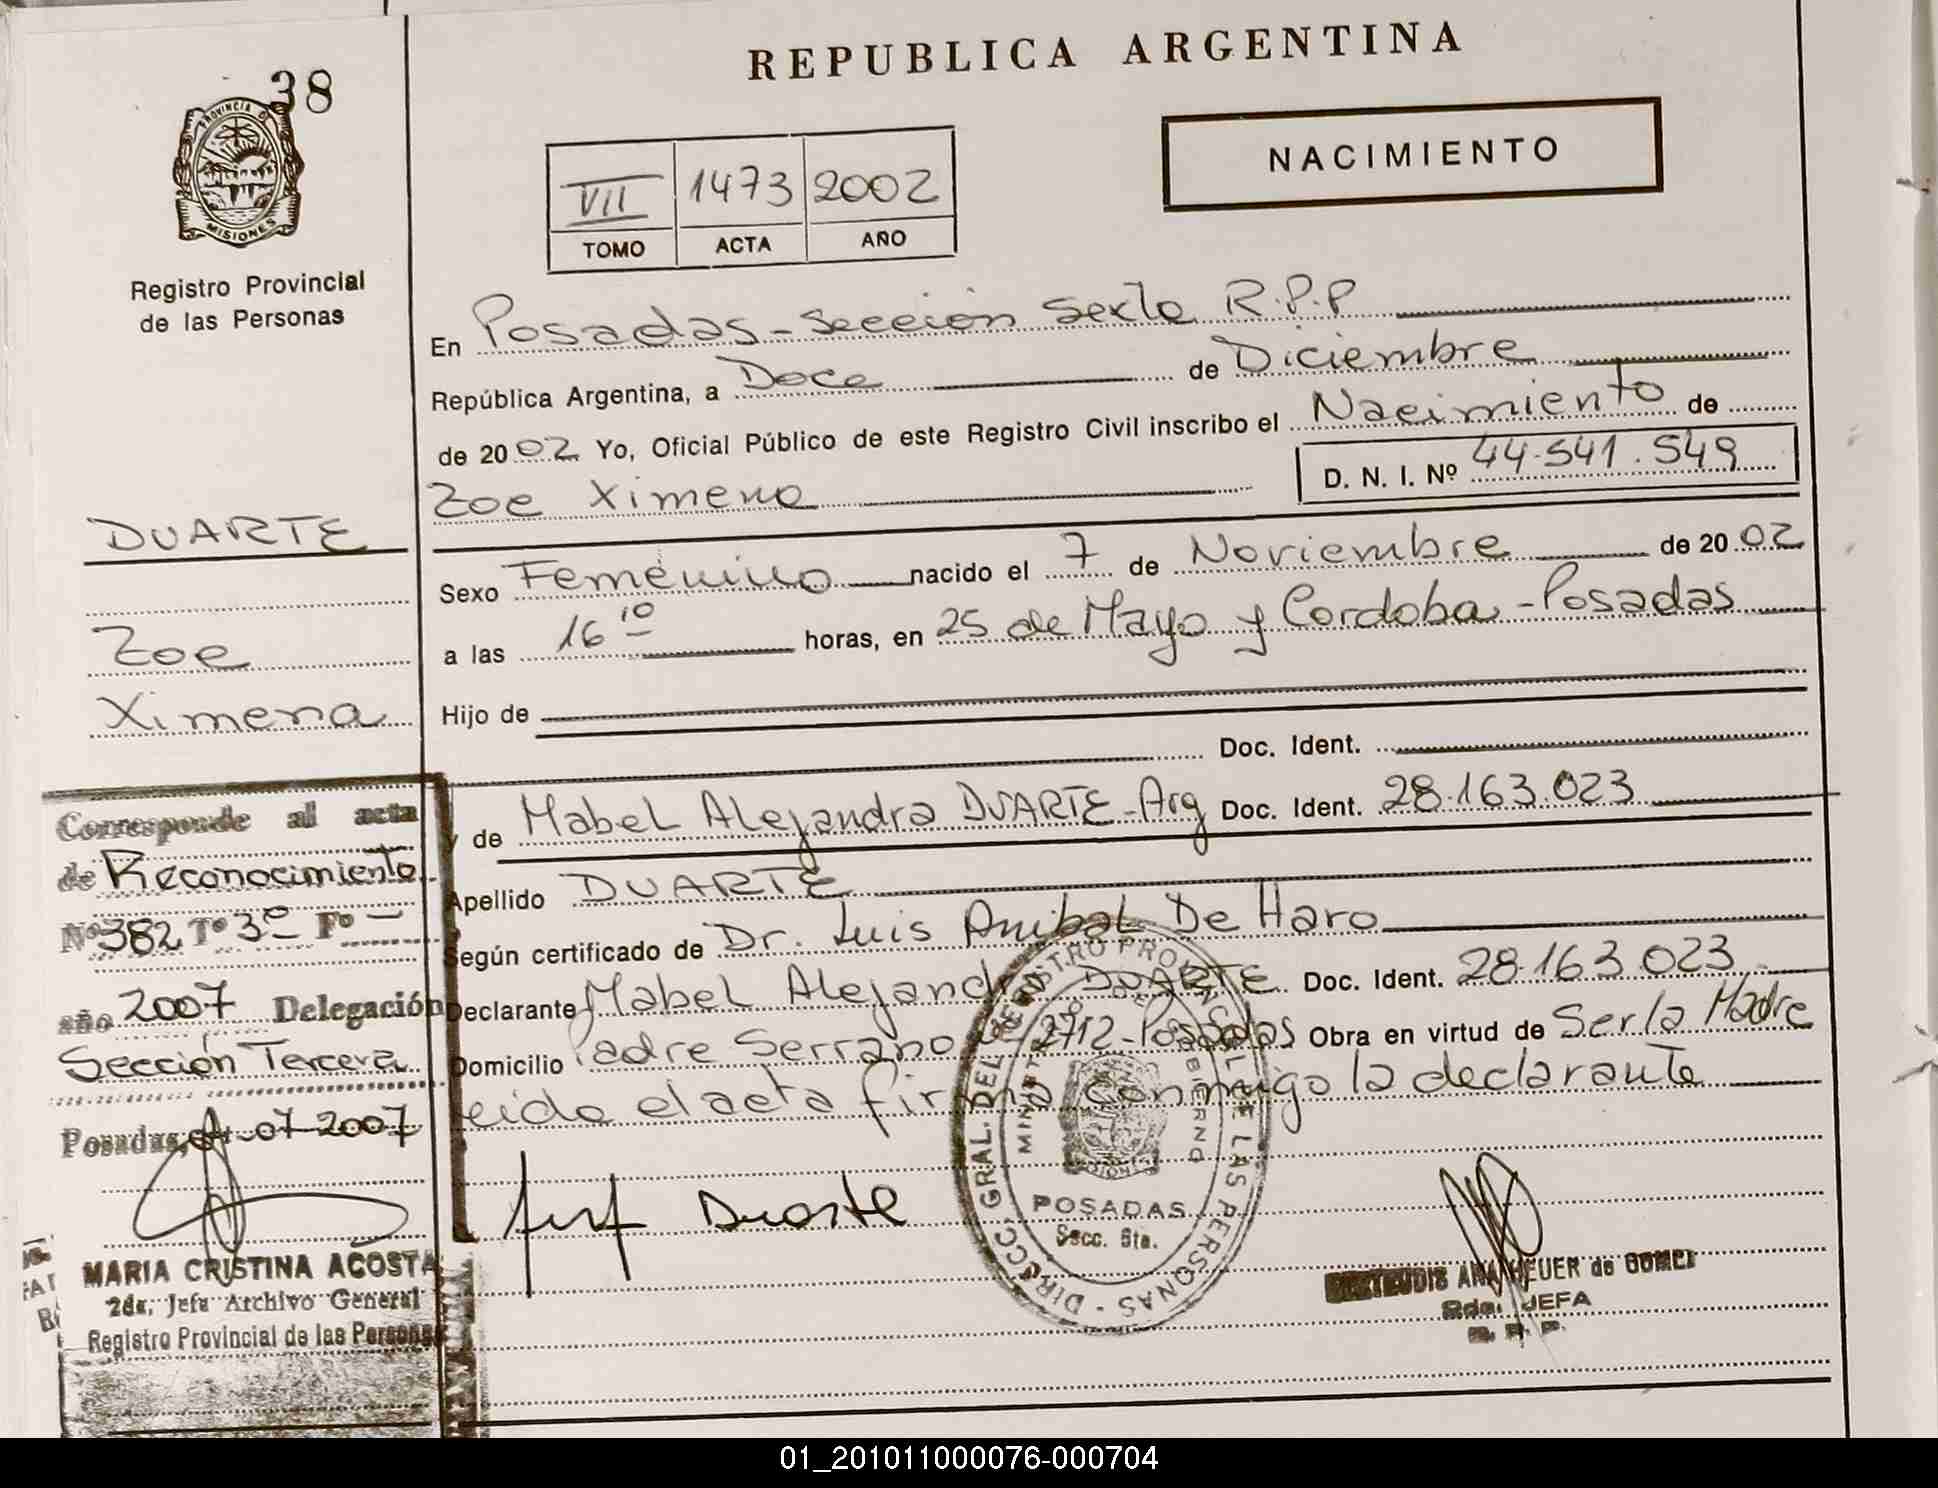 REPUBLICA ARGENTINA
38
PROVINCIA DE
MISIONES
Registro Provincial
de las Personas
NACIMIENTO
VII 1473 2002
TOMO ACTA AÑO
En Posadas - Sección Sexta R.P.P
República Argentina, a Doce de Diciembre
de 2002 Yo, Oficial Público de este Registro Civil inscribo el Nacimiento de
D. N. I. Nº 44.541.549
Zoe Ximena
DUARTE
Zoe
Ximena
Sexo Femenino nacido el 7 de Noviembre de 2002
a las 16 10 horas, en 25 de Mayo y Cordoba - Posadas
Hijo de
Doc. Ident.
y de Mabel Alejandra DUARTE - Arg Doc. Ident. 28.163.023
Apellido DUARTE
Según certificado de Dr. Luis Anibal De Haro
Declarante Mabel Alejandra DUARTE Doc. Ident. 28.163.023
Domicilio Padre Serrano Nº 2712 - Posadas Obra en virtud de Ser la Madre
Leida el acta firma conmigo la declarante
Corresponde al acta
de Reconocimiento
Nº 382 Tº 3º Fº -
año 2007 Delegación
Sección Tercera
Posadas, 07-2007
MARIA CRISTINA ACOSTA
2da. Jefa Archivo General
Registro Provincial de las Personas
Duarte
DIRECC. GRAL. DEL REGISTRO PROVINCIAL DE LAS PERSONAS
POSADAS
Secc. 6ta.
HEUER de GOMEZ
2da. JEFA
R. P. P.
01_201011000076-000704